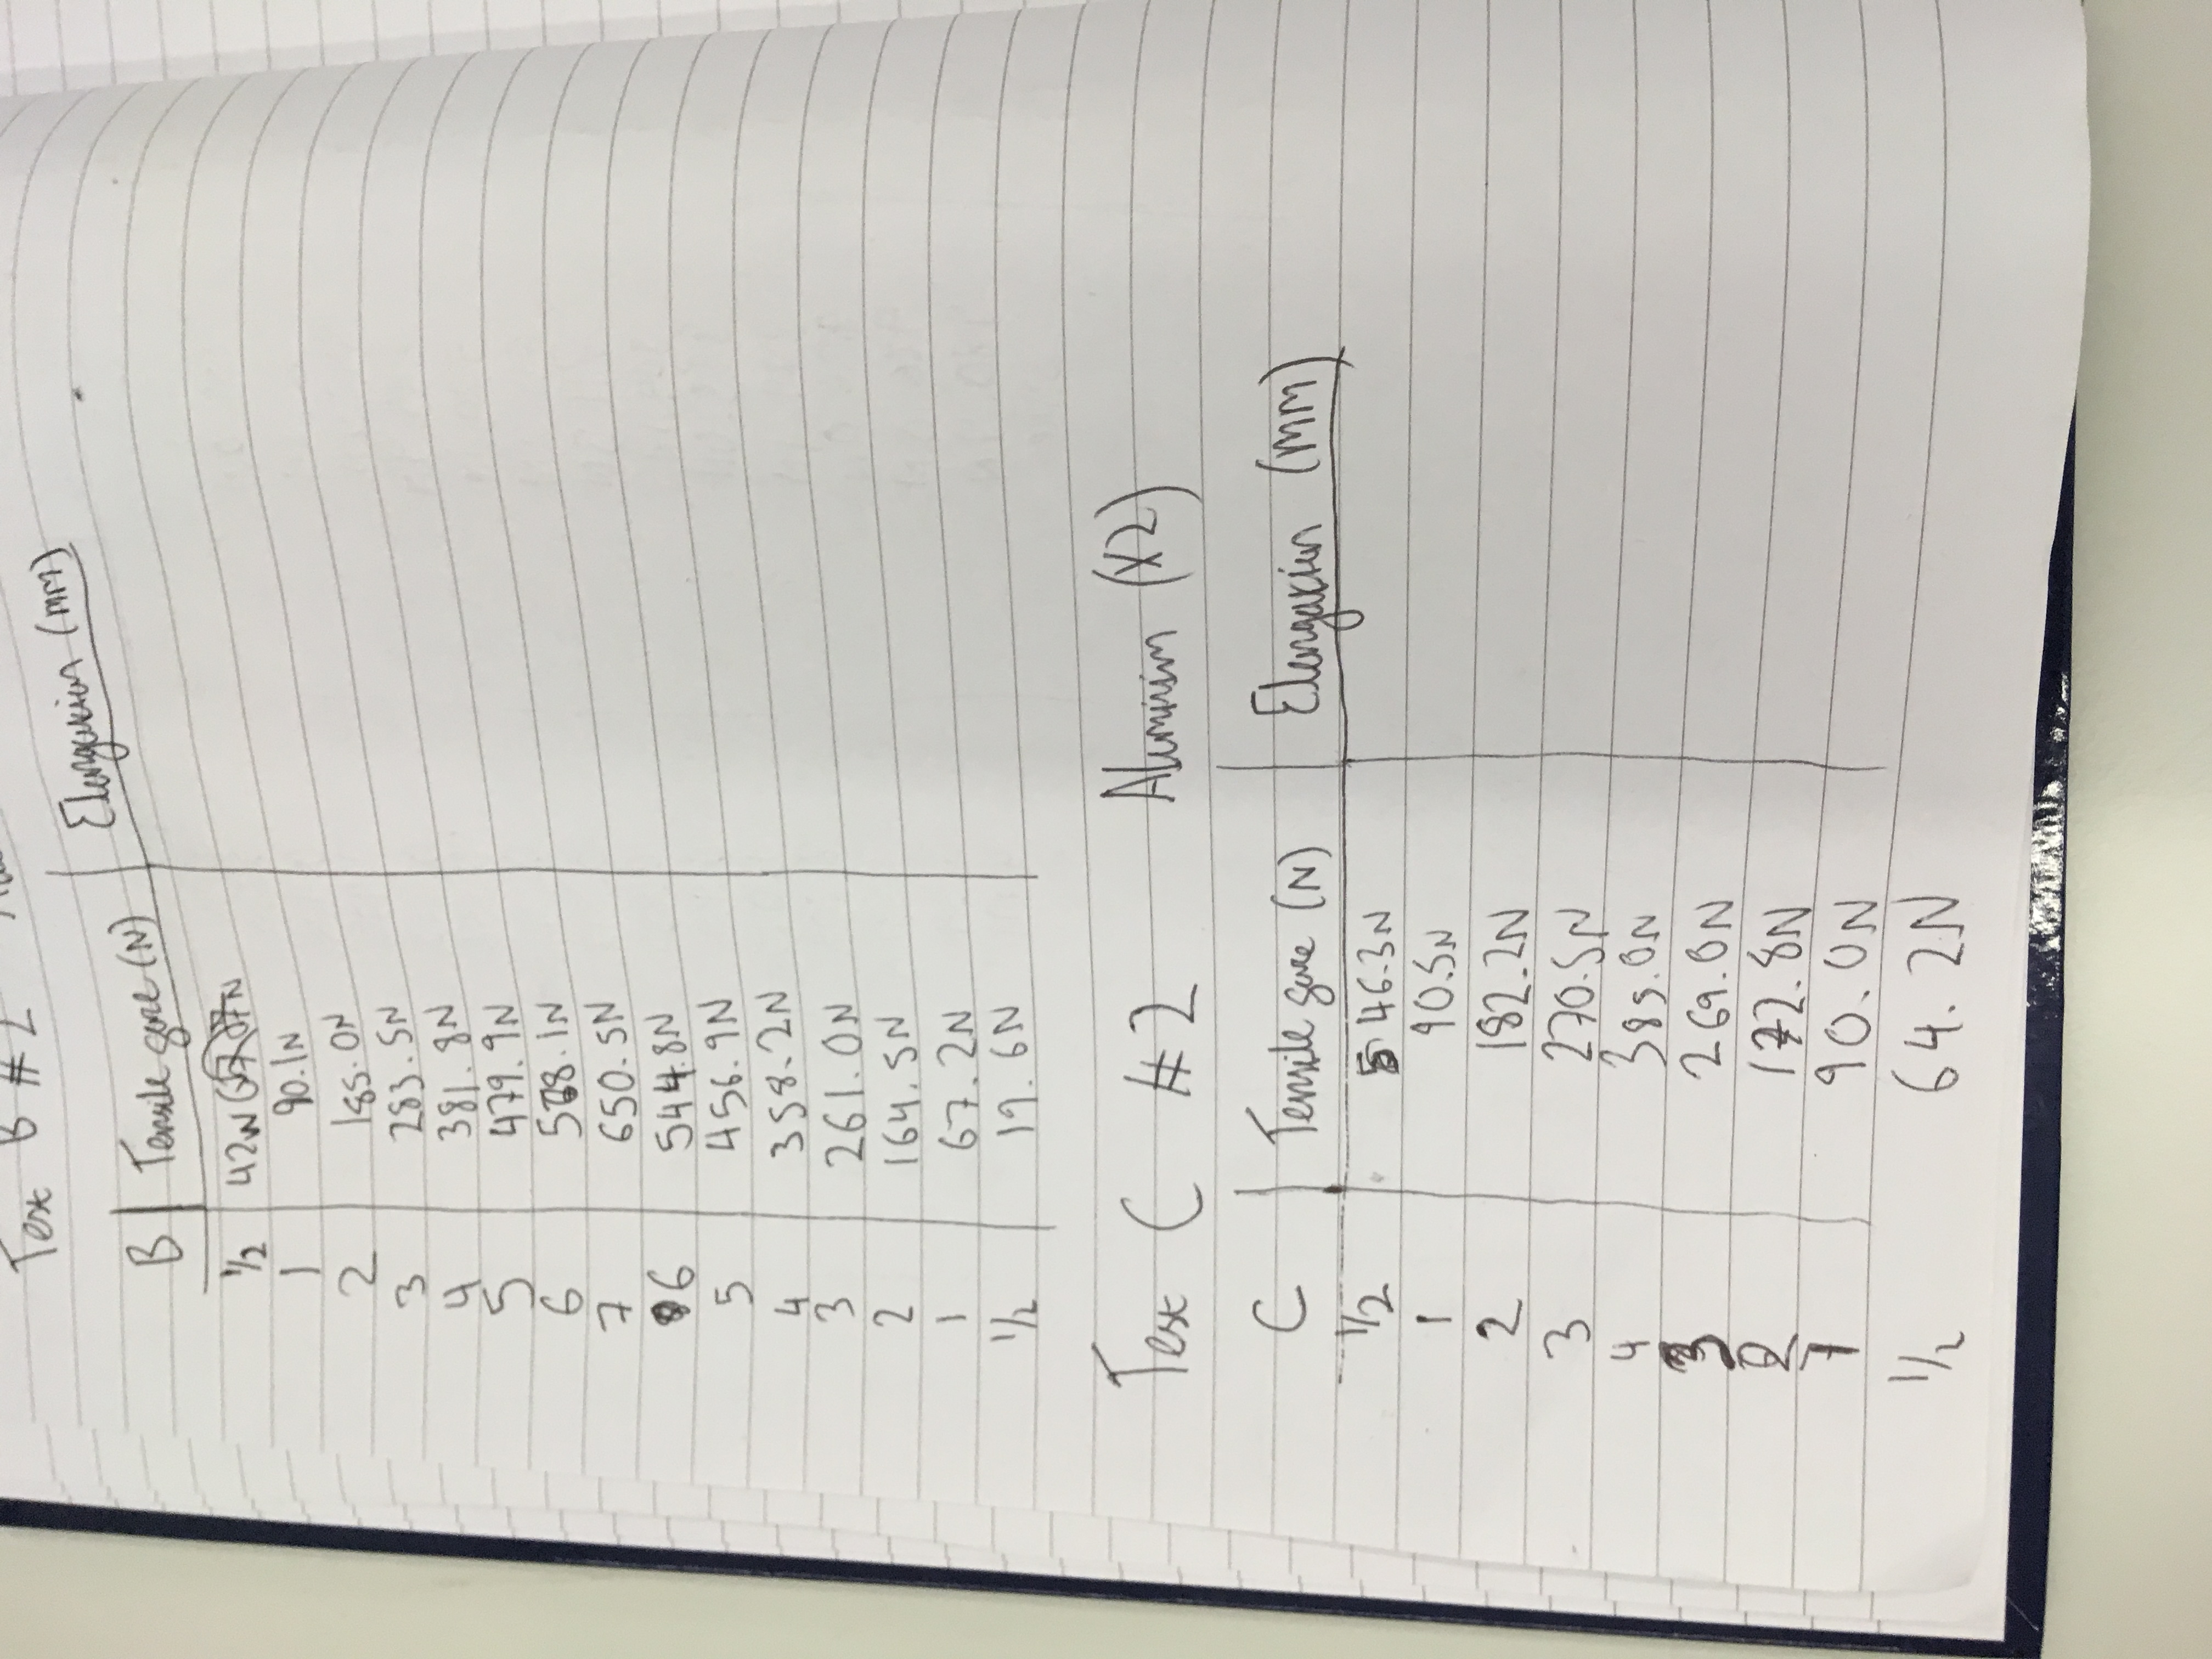 Test B #2
B Tensile force (N) Elongation (mm)
1/2 42N
1 90.1N
2 185.0N
3 283.5N
4 381.8N
5 479.9N
6 568.1N
7 650.5N
6 544.8N
5 456.9N
4 358.2N
3 261.0N
2 164.5N
1 67.2N
1/2 19.6N
Test C #2 Aluminium (X2)
C Tensile force (N) Elongation (mm)
1/2 46.3N
1 90.5N
2 182.2N
3 270.5N
4 385.0N
3 269.0N
2 172.8N
1 90.0N
1/2 64.2N